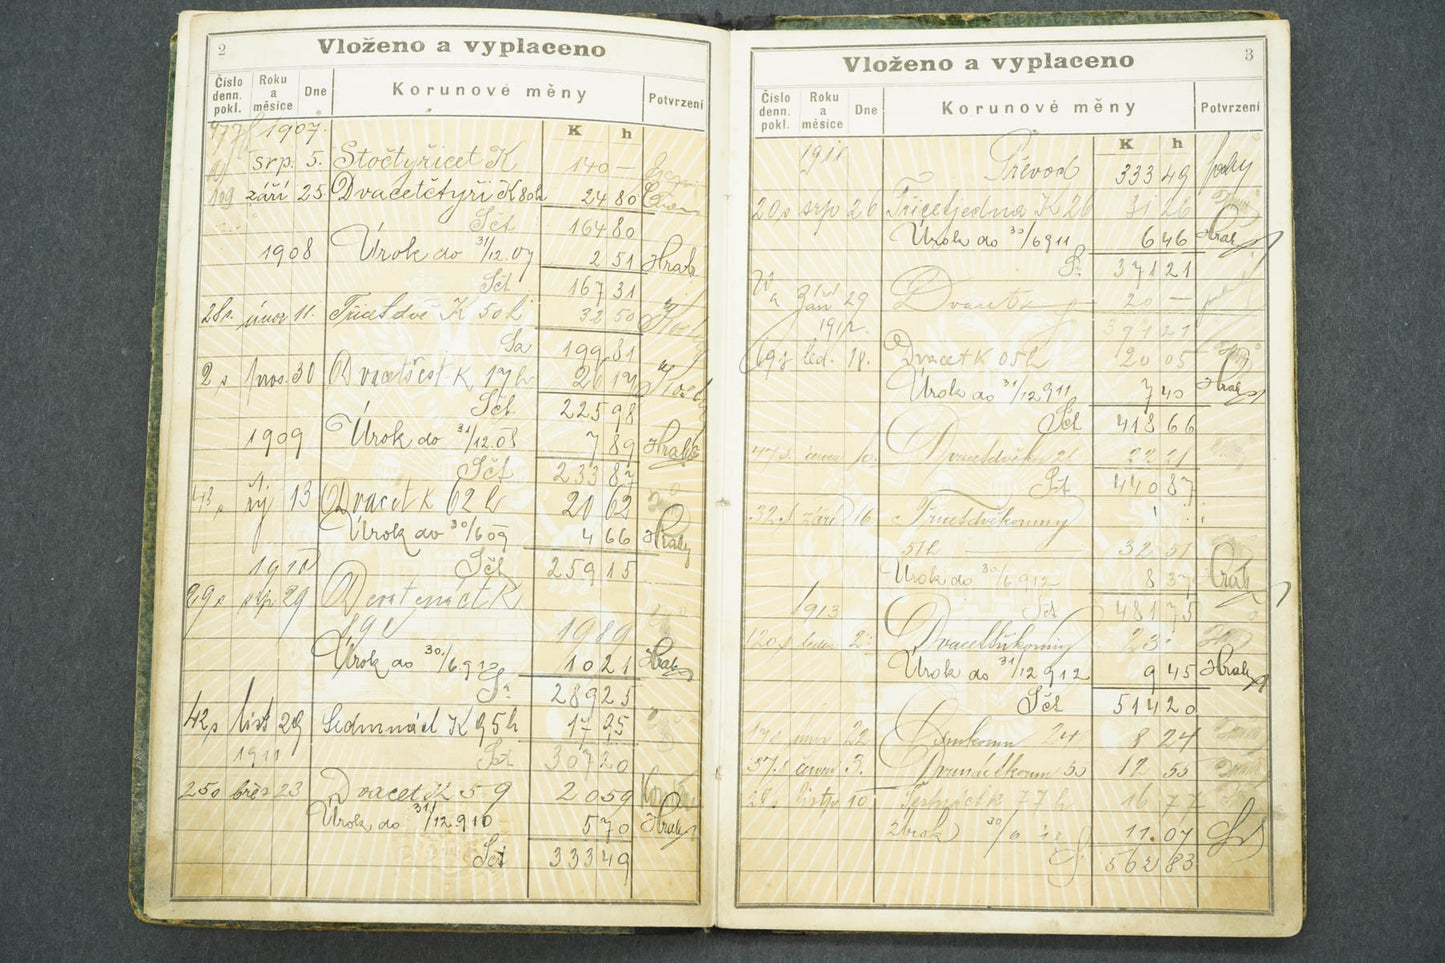 2
Vloženo a vyplaceno
Číslo denn. pokl. Roku a měsíce Dne Korunové měny Potvrzení
1907. K h
srp. 5. Stočtyřicet K 140 —
109 září 25 Dvacetčtyři K 80h 24 80
Sčt 164 80
1908 Úrok do 31/12.07 2 51 Hrab
Sčt 167 31
únor 11. Třicetdvě K 50h 32 50
Sa 199 81
2 s pros. 30 Dvacetšest K 17h 26 17
Sčt 225 98
1909 Úrok do 31/12.08 7 89 Hrab
Sčt 233 87
13 Dvacet K 62 h 20 62
Úrok do 30/6 09 4 66 Hrab
1910 Sčt 259 15
29 s srp 29 Devatenáct K
89 h 19 89
Úrok do 30./6.910 10 21 Hrab
S. 289 25
42 s list 29 Sedmnáct K 95h 17 95
1911 Sčt 307 20
250 břez 23 Dvacet K 59 20 59
Úrok do 31/12.910 5 70 Hrab
Sčt 333 49
3
Vloženo a vyplaceno
Číslo denn. pokl. Roku a měsíce Dne Korunové měny Potvrzení
K h
1911 Převod 333 49
20 s srp 26 Třicetjedna K 26 31 26
Úrok do 30/6 911 6 46 Hrab
S. 371 21
29 Dvacet 20 —
1912. 391 21
69 s led. 18. Dvacet K 05h 20 05
Úrok do 31/12.911 7 40 Hrab
Sčt 418 66
47 s červen Dvacetdvě 21 22 21
Sčt 440 87
32 s září 16 Třicetdvěkoruny
51 h 32 51
Úrok do 30/6.912 8 37 Hrab
1913 Sčt 481 75
120 s leden 2 Dvacettřikoruny 23
Úrok do 31/12 912 9 45 Hrab
Sčt 514 20
únor 22 24 8 24
57 s červen 3. Dvanáctkorun 50 12 50
listop 10. Šestnáct K 77 h 16 77
Úrok 30/6 13 11.07
S. 562 83